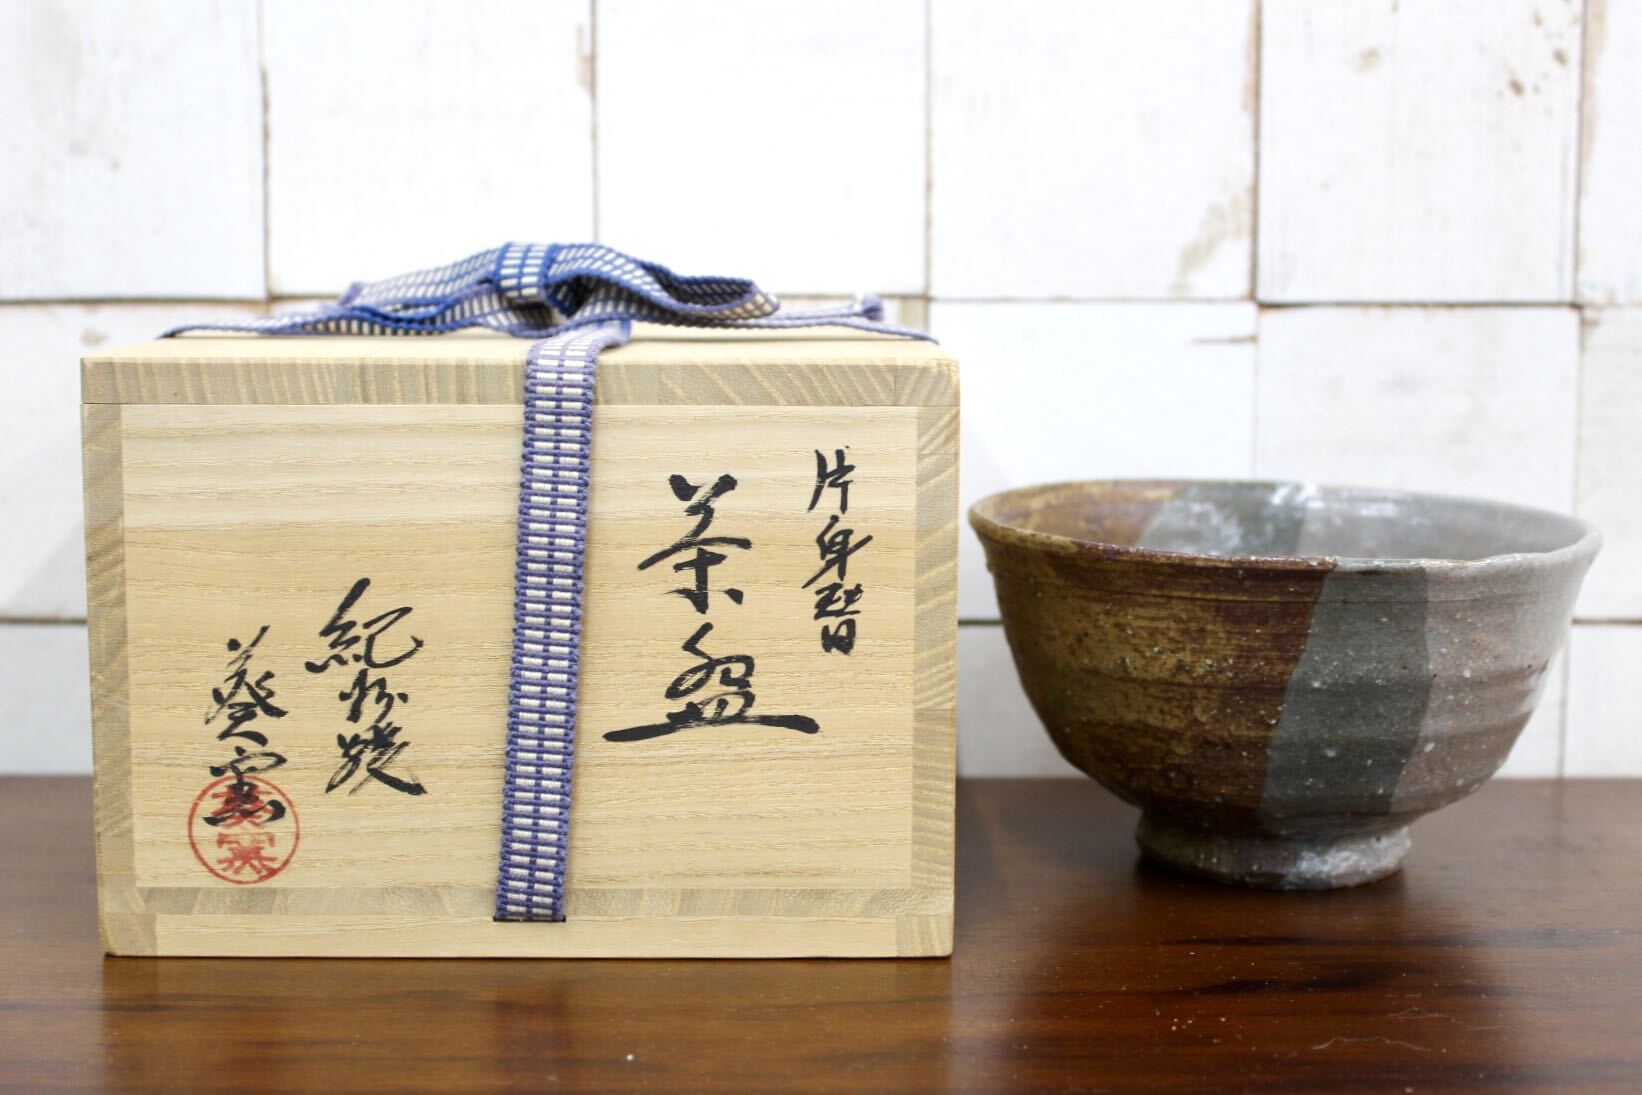 片身替
茶盌
紀州焼
葵窯